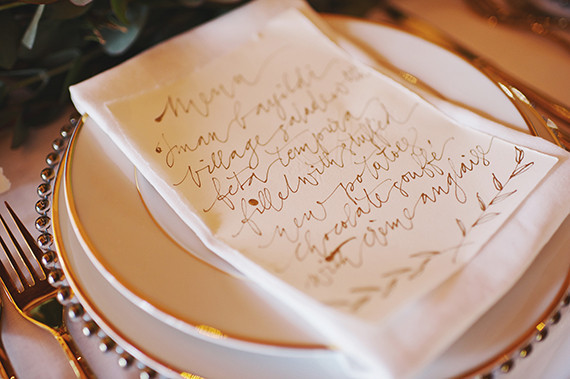 Menu
Imam bayildi
village salad with
feta tempura
fillet with stuffed
new potatoes
chocolate soufflé
with crème anglaise